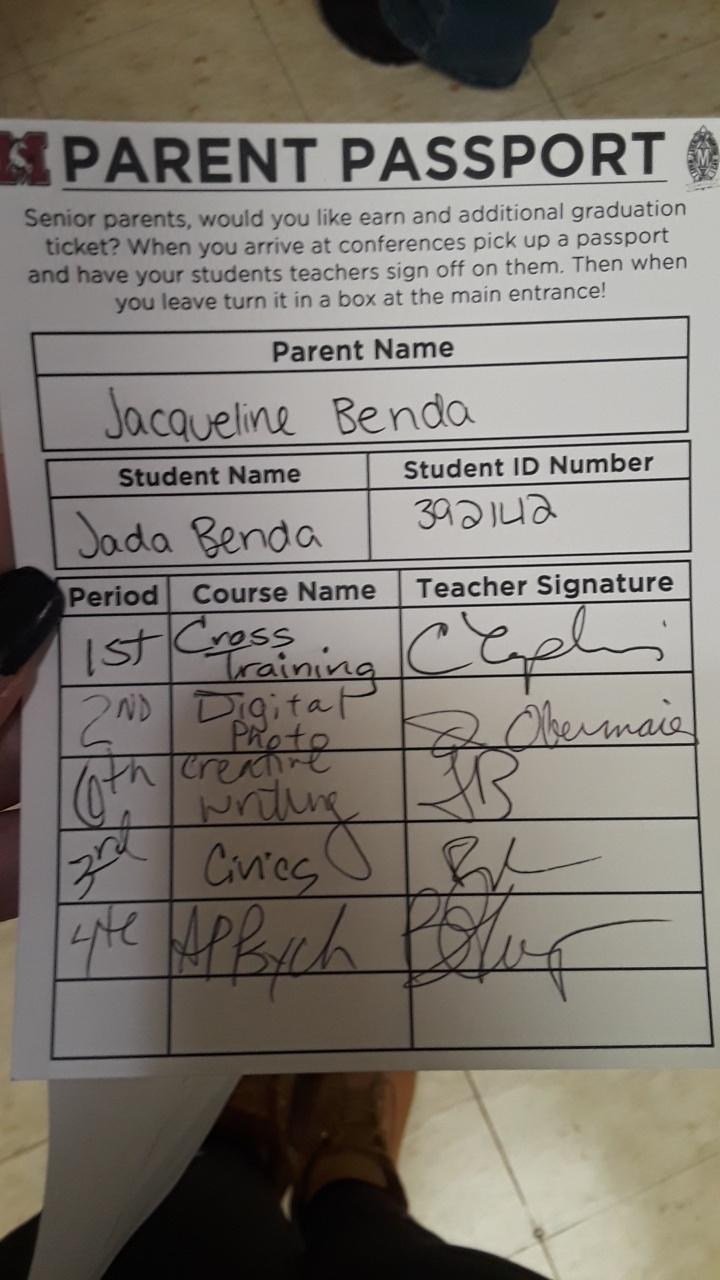 PARENT PASSPORT
Senior parents, would you like earn and additional graduation
ticket? When you arrive at conferences pick up a passport
and have your students teachers sign off on them. Then when
you leave turn it in a box at the main entrance!
Parent Name
Jacqueline Benda
Student Name Student ID Number
Jada Benda 392142
Period Course Name Teacher Signature
1st Cross
Training
2ND Digital
Photo Obermaie
6th creative
writing JB
3rd Civics
4th AP Psych